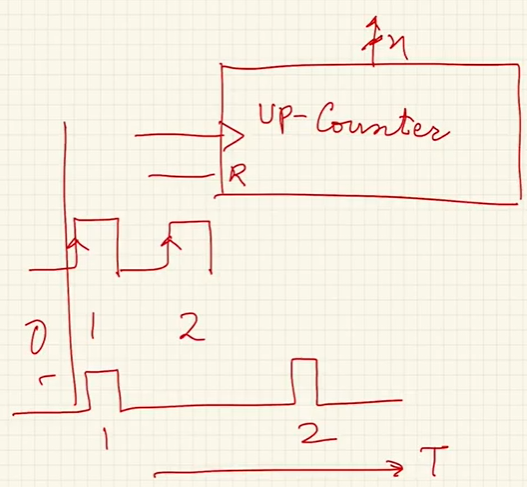 n
UP-Counter
R
0 1 2
1 2
T